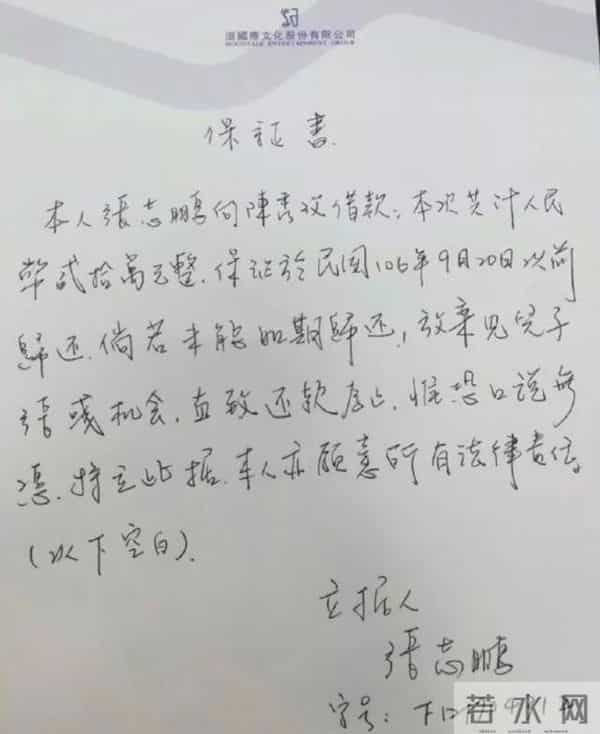 國際文化股份有限公司
ENTERTAINMENT GROUP
保证書
本人張志鵬向陳秀玟借款,本次共计人民
幣貳拾萬元整.保证於民国106年9月20日以前
歸还.倘若未能如期歸还,放棄見兒子
張彧机会.直致还款为止.惟恐口说無
憑.特立此据.本人亦願意所有法律責任
(以下空白).
立据人
張志鵬
字号:
若水网